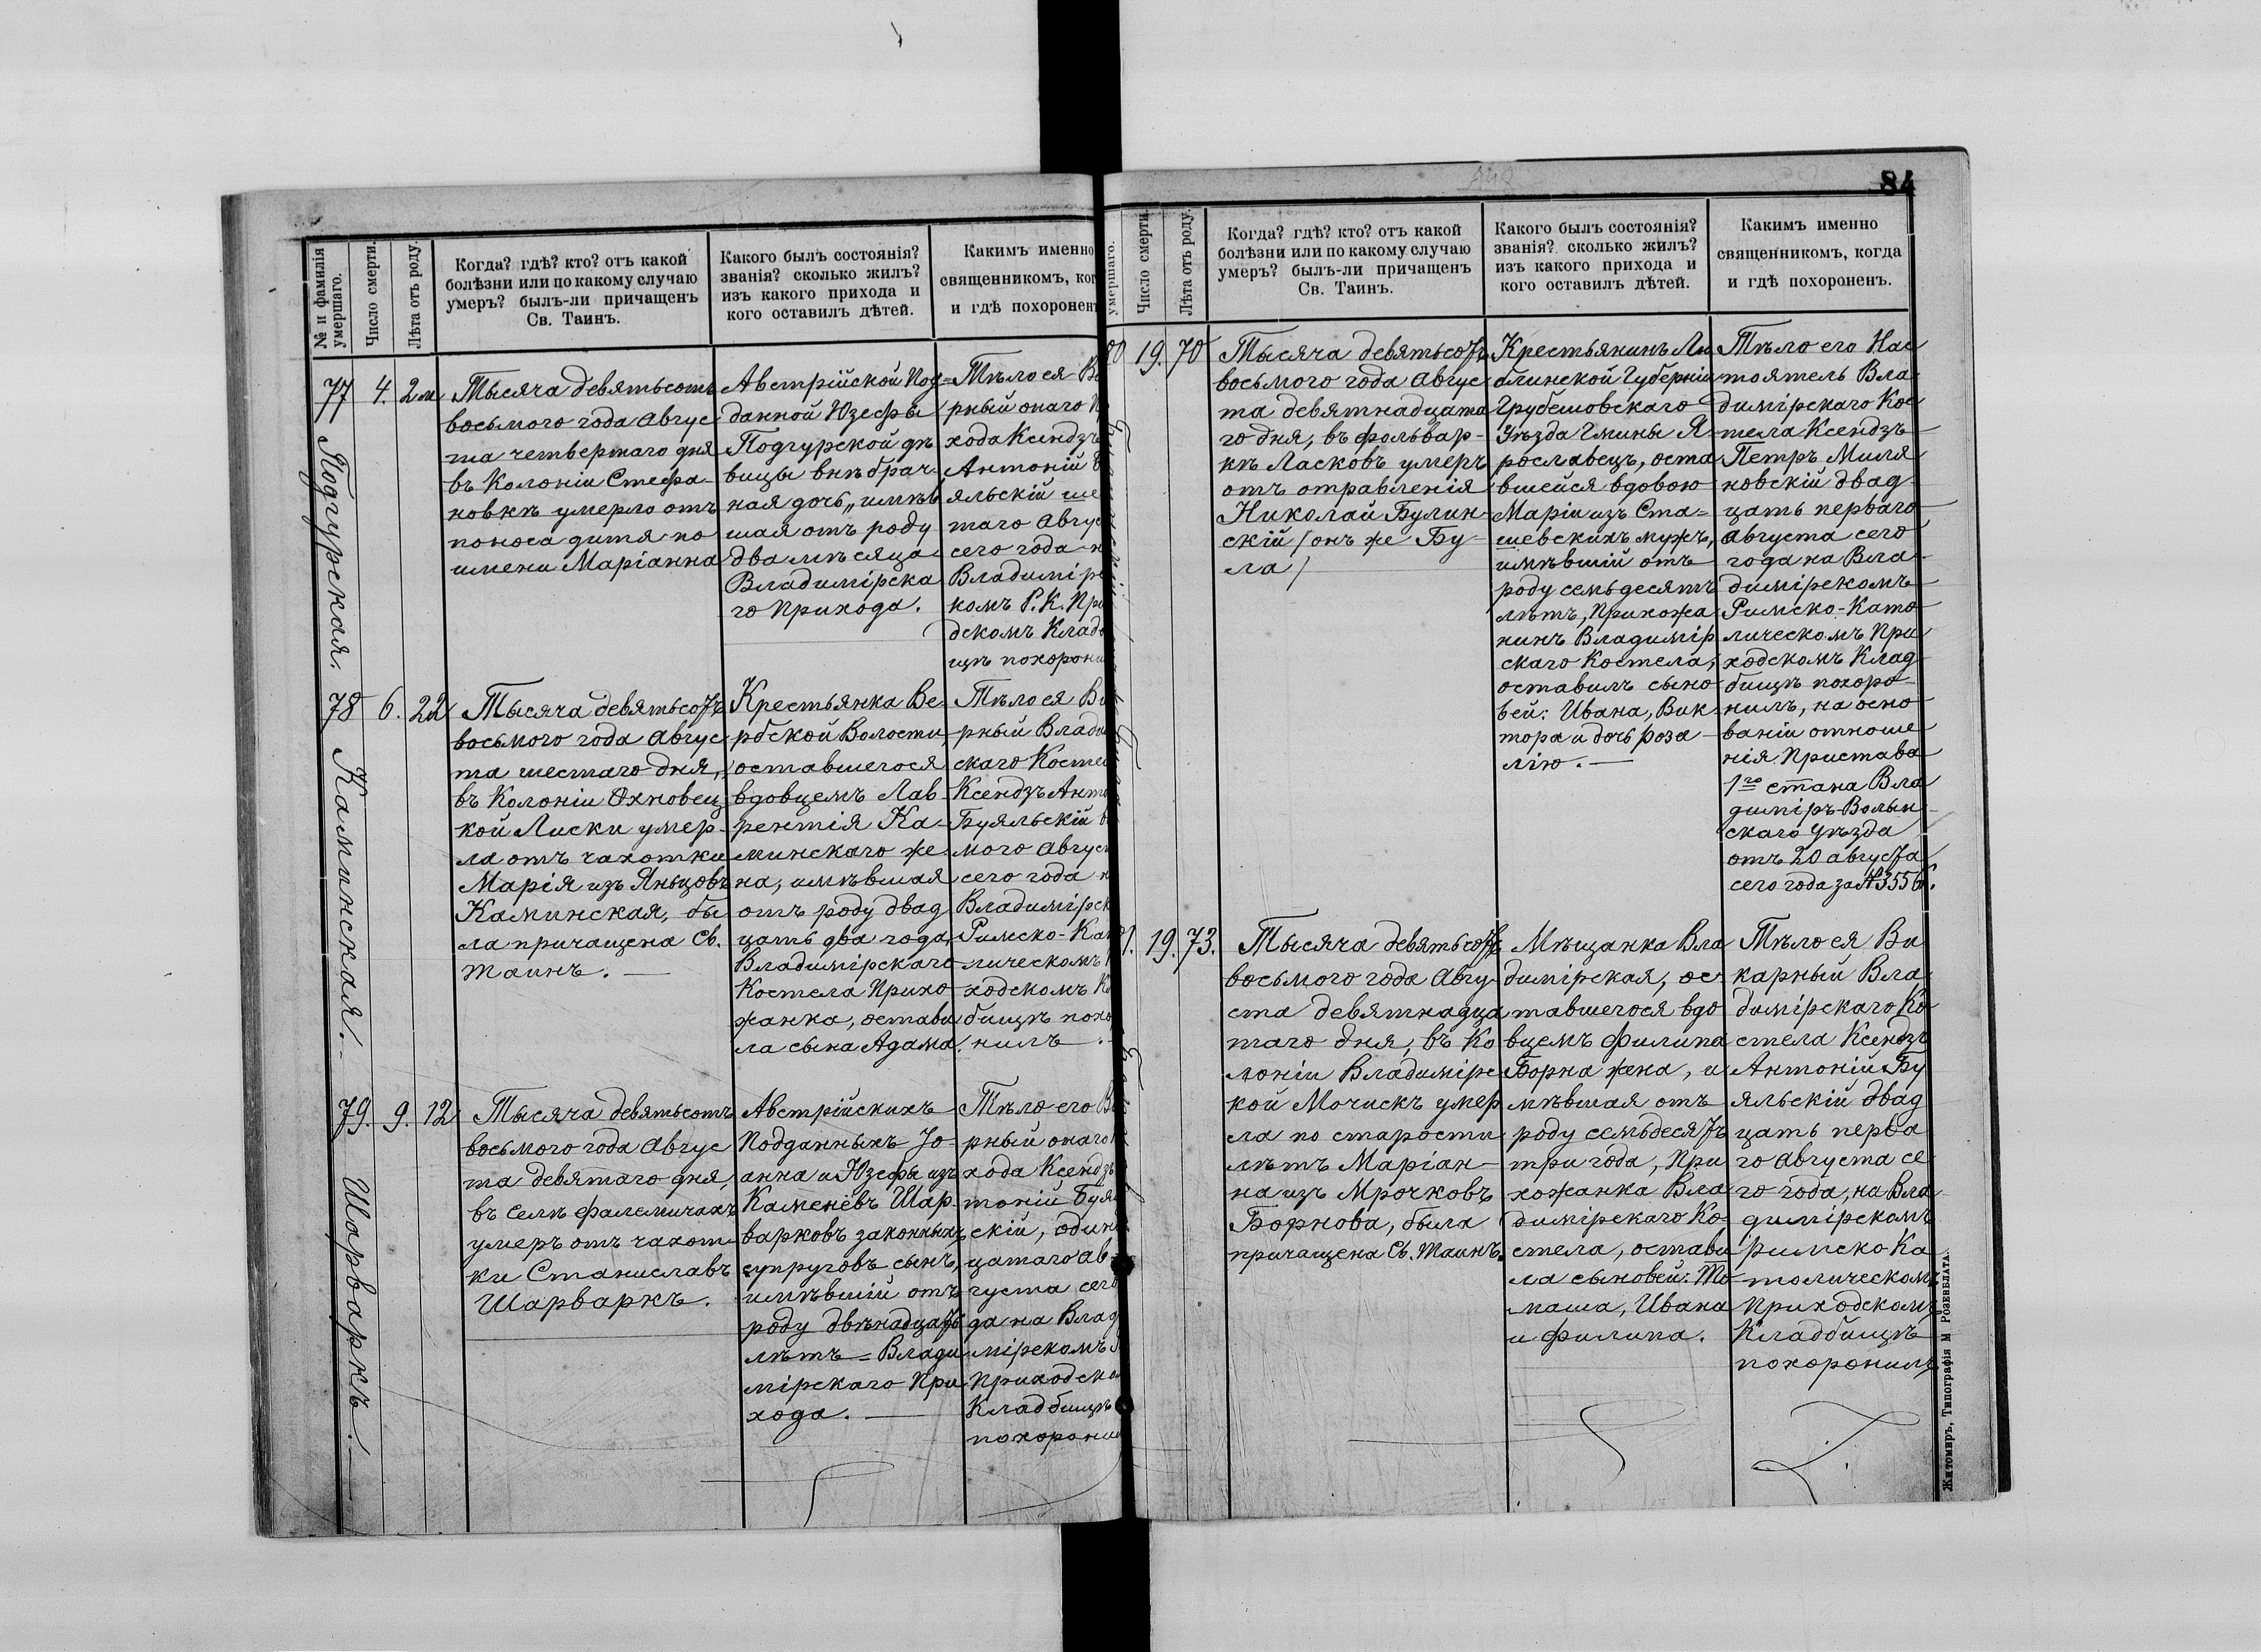 84
№ и фамилія умершаго.
Число смерти.
Лѣта отъ роду.
Когда? гдѣ? кто? отъ какой
болѣзни или по какому случаю
умеръ? былъ-ли причащенъ
Св. Таинъ.
Какого былъ состоянія?
званія? сколько жилъ?
изъ какого прихода и
кого оставилъ дѣтей.
Каким именно
священникомъ, ког
и гдѣ похоронен
77
Подгурская.
4.
2 м
Тысяча девятьсотъ
восьмого года Авгус
та четвертаго дня
въ Колоніи Стефа-
новкѣ умерло отъ
поноса дитя по
имени Маріанна
Австрійской Под=
данной Юзефы
Подгурской дѣ
вицы внѣбрач-
ная дочь, имѣв
шая отъ роду
два мѣсяца
Владимірска
го Прихода.
Тѣло ея В
рный онаго П
хода Ксендзъ
Антоній Б
яльскій ше
таго Авгус
сего года н
Владимірс
комъ Р. К. При
дскомъ Кладб
щѣ похорони
78
Каминская.
6.
22
Тысяча девятьсотъ
восьмого года Авгус
та шестаго дня,
въ Колоніи Охновец
кой Лиски умер-
ла отъ чахотки
Марія изъ Янцовъ
Каминская, бы
ла причащена Св.
Таинъ.
Крестьянка Ве
рбской Волости,
оставшегося
вдовцемъ Лав-
рентія Ка-
минскаго же
на, имѣвшая
отъ роду двад
цать два года,
Владимірскаго
Костела Прихо
жанка, остави
ла сына Адама.
Тѣло ея Ви
рный Влади
скаго Костел
Ксендзъ Анто
Буяльскій в
мого Август
сего года н
Владимірск
Римско-Кат
лическомъ
ходскомъ К
бищѣ похо
нилъ.
79.
Шарваркъ.
9.
12
Тысяча девятьсотъ
восьмого года Авгус
та девятаго дня,
въ селѣ Фалемичахъ
умеръ отъ чахот
ки Станиславъ
Шарваркъ.
Австрійскихъ
Подданныхъ Іо-
анна и Юзефы изъ
Каменёвъ Шар-
варковъ законныхъ
супруговъ сынъ,
имѣвшій отъ
роду двѣнадцать
лѣтъ = Влади
мірскаго При
хода.
Тѣло его В
рный онаго
хода Ксендзъ
тоній Буя
скій, один
цатаго Ав
густа сего
да на Влад
мірскомъ
Приходско
Кладбищѣ
похорони
умершаго.
Число смерти.
Лѣта отъ роду.
Когда? гдѣ? кто? отъ какой
болѣзни или по какому случаю
умеръ? былъ-ли причащенъ
Св. Таинъ.
Какого былъ состоянія?
званія? сколько жилъ?
изъ какого прихода и
кого оставилъ дѣтей.
Какимъ именно
священникомъ, когда
и гдѣ похороненъ.
80
19.
70
Тысяча девятьсотъ
восьмого года Авгус
та девятнадцата
го дня, въ фольвар-
кѣ Ласковъ умеръ
отъ отравленія
Николай Булин-
скій /онъ же Бу-
ла/
Крестьянинъ Лю
блинской Губерніи
Грубешовскаго
Уѣзда Гмины Я-
рославецъ, оста
вшейся вдовою
Маріи изъ Ста=
шевскихъ мужъ,
имѣвшій отъ
роду семьдесятъ
лѣтъ, Прихожа
нинъ Владимір
скаго Костела,
оставилъ сыно
вей: Ивана, Вик
тора и дочь Роза
лію.
Тѣло его Нас
тоятель Вла
димірскаго Кос
тела Ксендзъ
Петръ Миля
новскій двад
цать перваго
Августа сего
года на Вла-
димірскомъ
Римско-Като
лическомъ При
ходскомъ Клад
бищѣ похоро-
нилъ, на осно
ваніи отноше
нія Пристава
1го стана Вла
диміръ-Волын-
скаго Уѣзда
отъ 20 августа
сего года за № 3556.
1.
19.
73.
Тысяча девятьсотъ
восьмого года Авгу
ста девятнадца
таго дня, въ Ко
лоніи Владимірс
кой Мочискѣ умер
ла по старости
лѣтъ Маріан-
на изъ Мрочковъ
Борнова, была
причащена Св. Таинъ.
Мѣщанка Вла
димірская, ос-
тавшегося вдо
вцемъ Филипа
Борна жена, и
мѣвшая отъ
роду семьдесятъ
три года, При
хожанка Вла
димірскаго Ко-
стела, остави
ла сыновей: То
маша, Ивана
и Филипа.
Тѣло ея, Ви
карный Вла
димірскаго Ко
стела Ксендзъ
Антоній Бу
яльскій двад
цать перва
го Августа се
го года, на Вла
димірскомъ
Римско Ка
толическомъ
Приходскомъ
Кладбищѣ
похоронилъ
Житомиръ, Типографія М РОЗЕНБЛАТА.